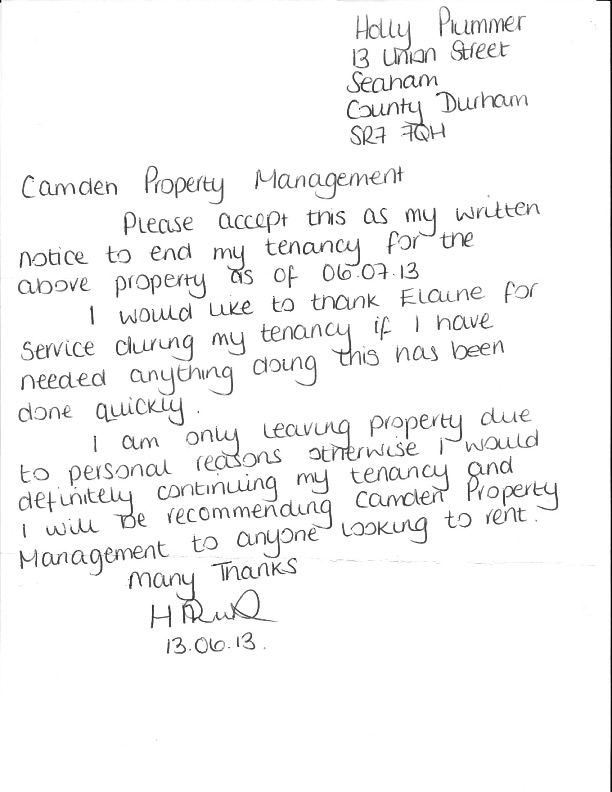 Holly Plummer
13 Union Street
Seaham
County Durham
SR7 7QH
Camden Property Management
Please accept this as my written
notice to end my tenancy for the
above property as of 06.07.13
I would like to thank Elaine for
service during my tenancy if I have
needed anything doing this has been
done quickly.
I am only leaving property due
to personal reasons otherwise I would
definitely continuing my tenancy and
I will be recommending Camden Property
Management to anyone looking to rent.
Many Thanks
13.06.13.